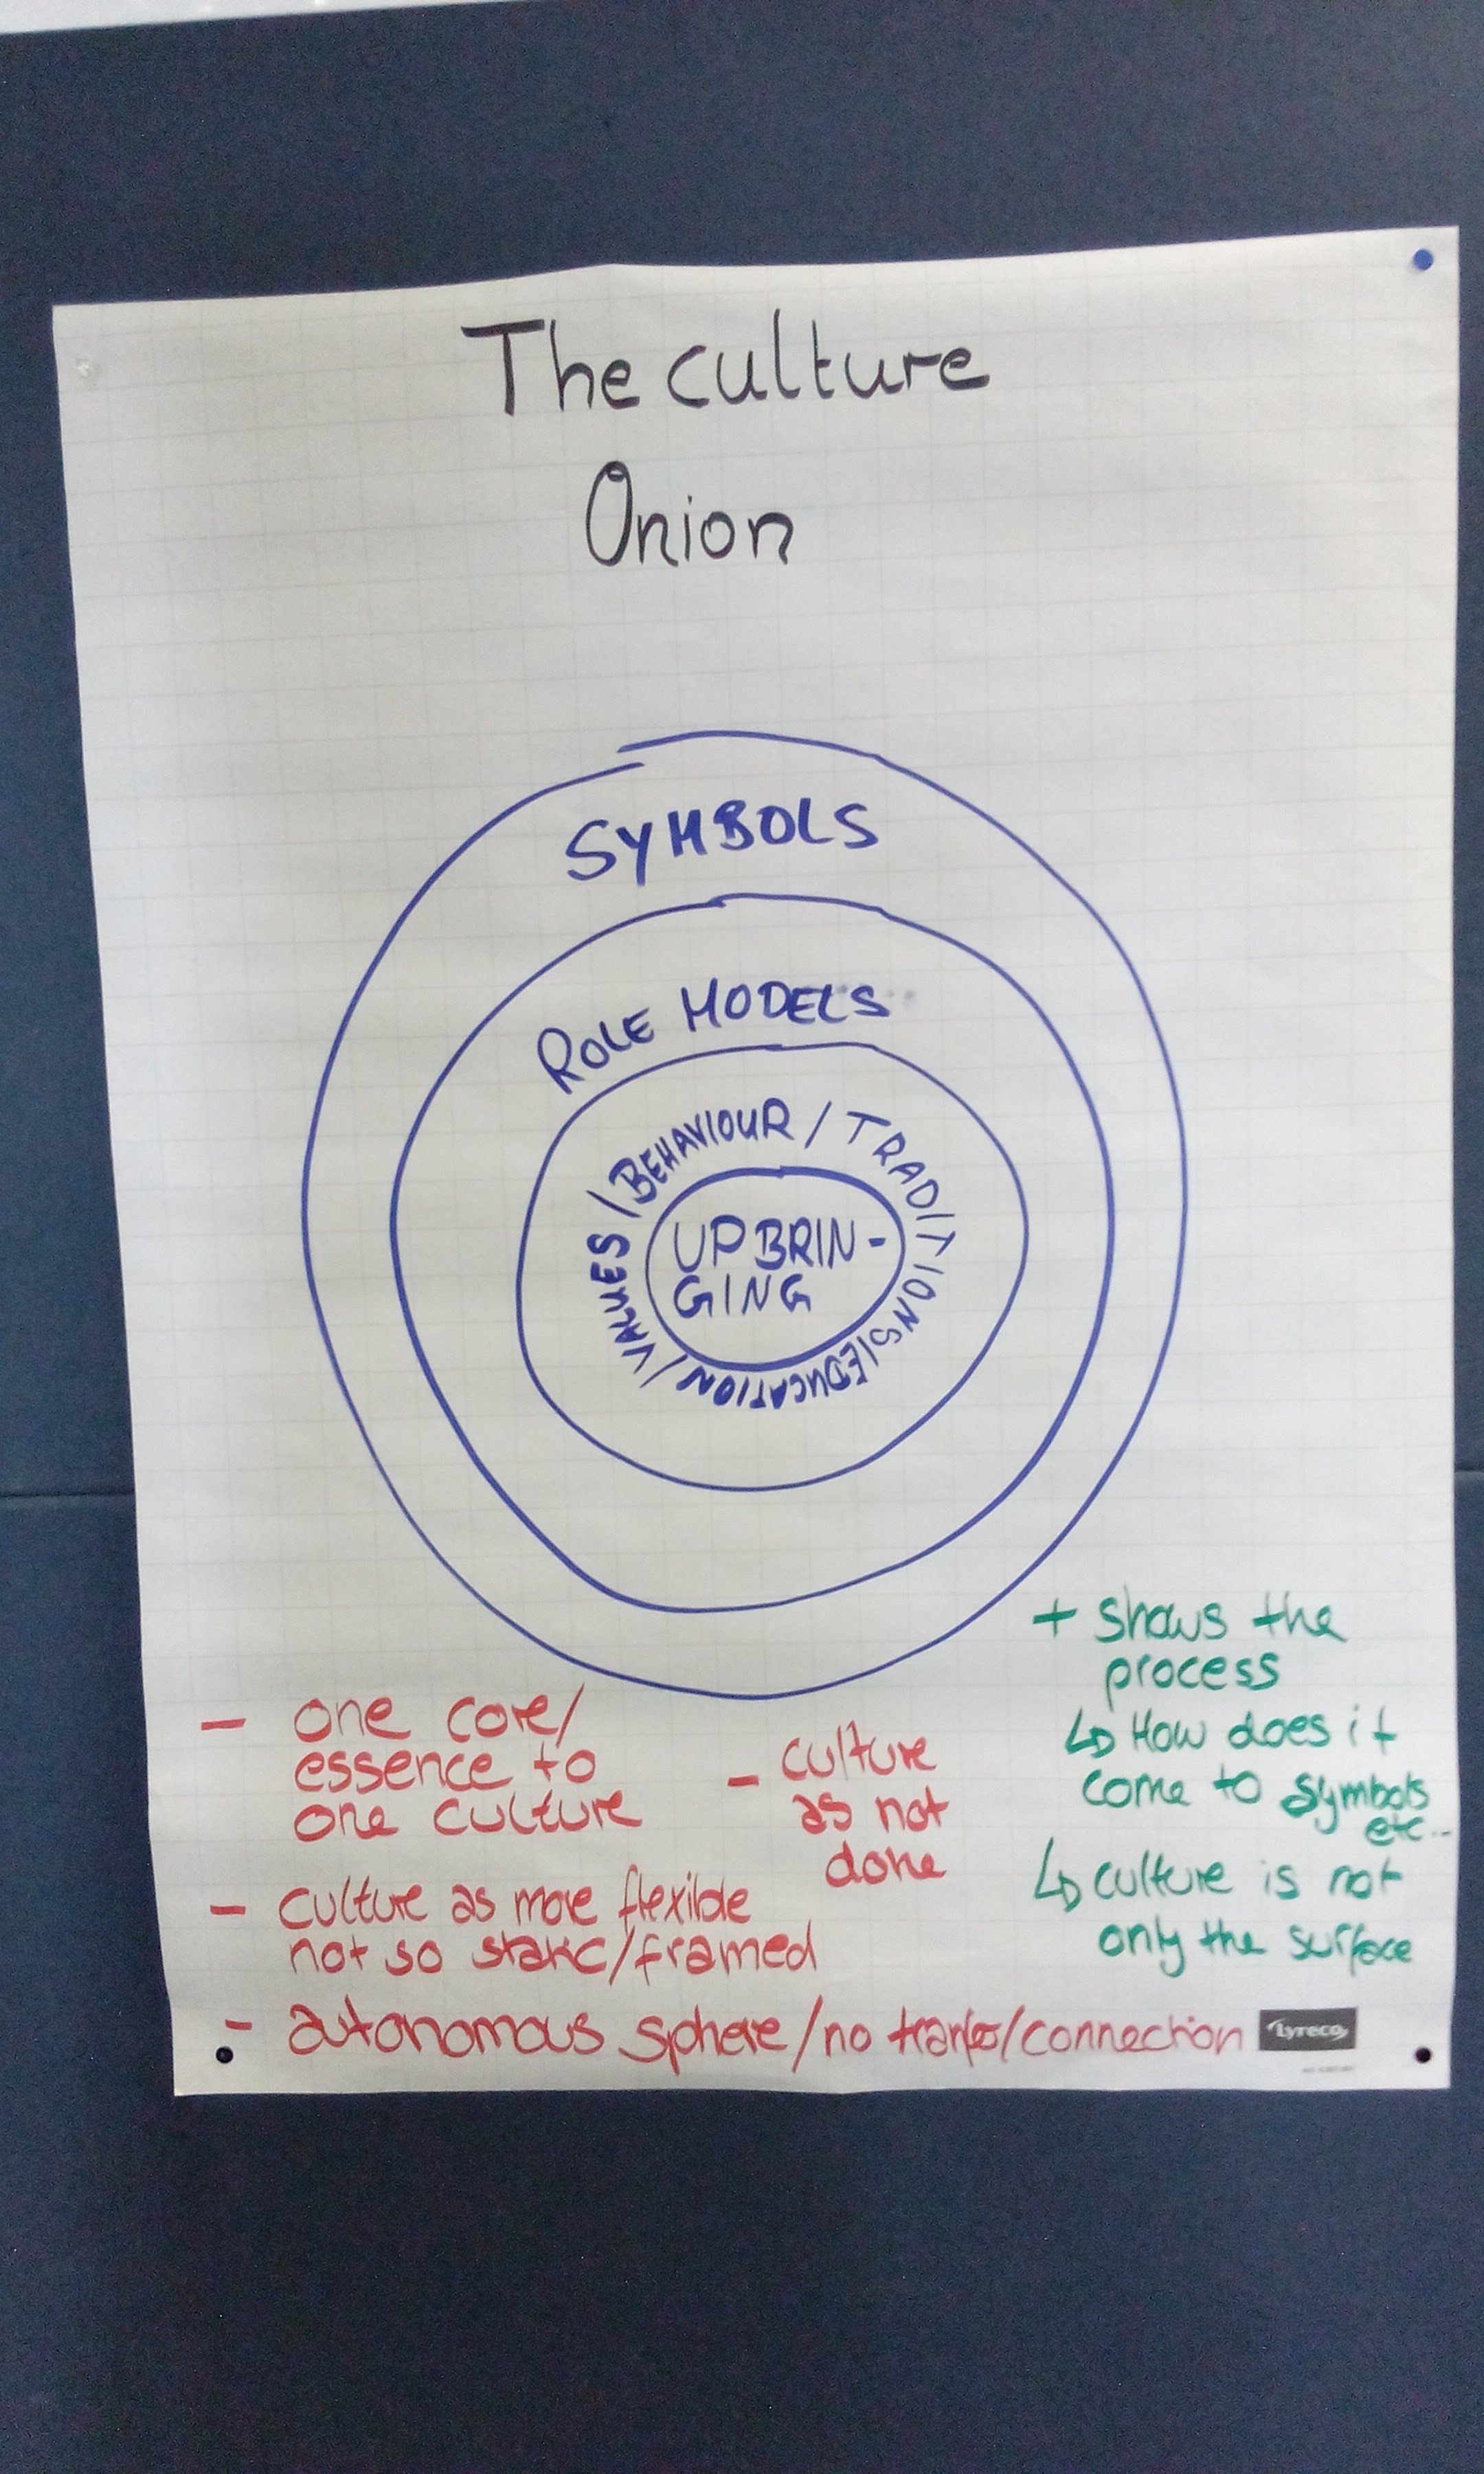 The culture
Onion
SYMBOLS
ROLE MODELS
VALUES / BEHAVIOUR / TRADITIONS / EDUCATION /
UPBRIN-
GING
+ shows the
process
↳ How does it
come to symbols
etc...
↳ culture is not
only the surface
- one core/
essence to
one culture
- culture
as not
done
- culture as more flexible
not so static/framed
- autonomous sphere/no /connection
Lyreco